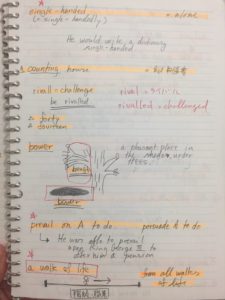 single-handed = alone
(= single-handedly)
He would write a dictionary
single-handed
a counting house
rival = challenge
be rivalled
rivalled = challenged
forty
fourteen
bower
a pleasant place in
the shade under
trees
bough
bower
prevail on A to do
persuade A to do
He was able to prevail
upon King George III to
a walk of life
from all walks
of life